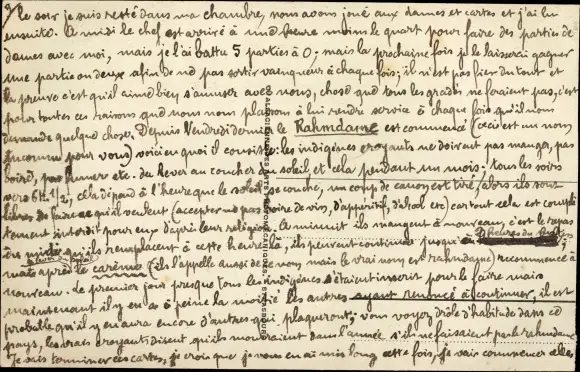 le soir je suis resté dans ma chambre, nous avons joué aux dames et cartes et j'ai lu
ensuite. A midi le chef est arrivé à une heure moins le quart pour faire des parties de
dames avec moi, mais je l'ai battu 5 parties à 0; mais la prochaine fois je le laisserai gagner
une partie ou deux afin de ne pas sortir vainqueur à chaque fois; il n'est pas fier du tout et
la preuve c'est qu'il aime bien s'amuser avec nous, chose que tous les gradés ne feraient pas, c'est
pour toutes ces raisons que nous nous plaisons à lui rendre service à chaque fois qu'il nous
demande quelque chose. Depuis Vendredi dernier le Rahmdame est commencé (ceci est un nom
inconnu pour vous) voici en quoi il consiste: les indigènes croyants ne doivent pas manger, pas
boire, pas fumer etc. du lever au coucher du soleil et cela pendant un mois; tous les soirs
vers 6h. 1/2, cela dépend à l'heure que le soleil se couche, un coup de canon est tiré, alors ils sont
libres de faire ce qu'ils veulent (accepter ne pas boire de vin, d'apéritif, d'alcool etc) car tout cela est complè
tement interdit pour eux d'après leur religion. A minuit ils mangent à nouveau, c'est le repas
du midi qu'ils remplacent à cette heure là, ils peuvent continuer jusqu'à
mais après le carême (ils l'appelle aussi de ce nom mais le vrai nom est rahmdame) recommence à
nouveau. Le premier jour presque tous les indigènes s'étaient inscrit pour le faire mais
maintenant il y en a à peine la moitié les autres ayant renoncé à continuer, il est
probable qu'il y en aura encore d'autres qui plaqueront; vous voyez drôle d'habitude dans ce
pays, les vrais croyants disent qu'ils mourraient dans l'année s'il ne faisaient pas le rahmdame
Je vais terminer ces cartes, je crois que je vous en ai mis long cette fois, je vais commencer celles